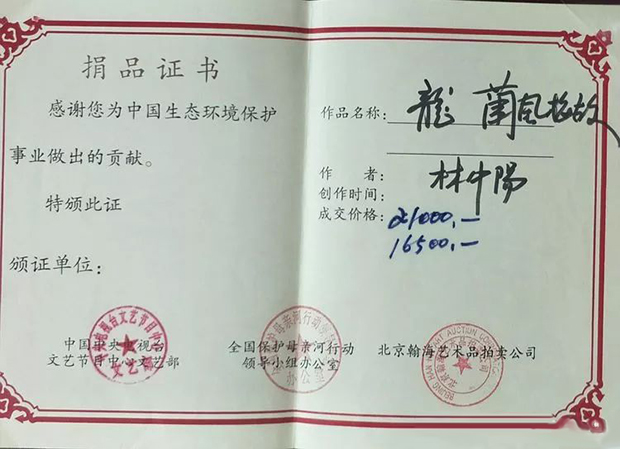 捐品证书
感谢您为中国生态环境保护
事业做出的贡献。
特颁此证
颁证单位：
中国中央电视台
文艺节目中心文艺部
作品名称：龍 蘭風
作 者：林中陽
创作时间：
成交价格：21000,-
16500,-
全国保护母亲河行动
领导小组办公室
北京翰海艺术品拍卖公司